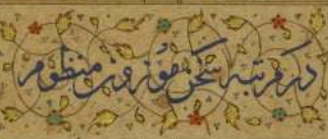 در مرتبه سخن موزون منظوم